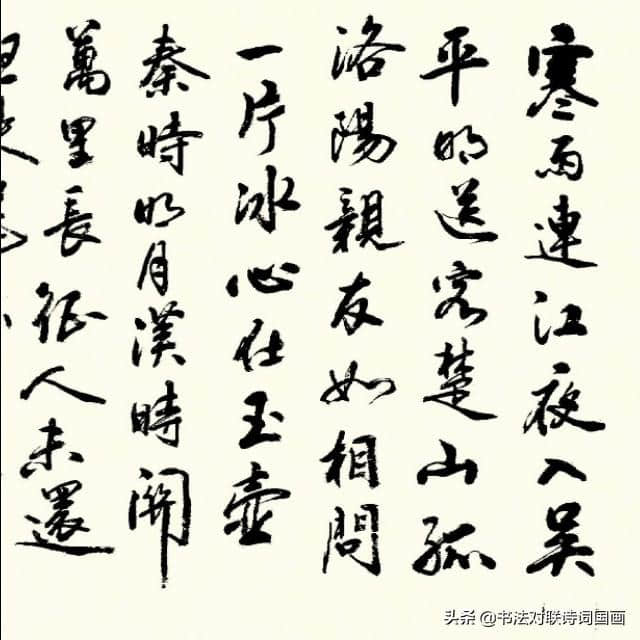 寒雨連江夜入吴
平明送客楚山孤
洛陽親友如相問
一片冰心在玉壺
秦時明月漢時關
萬里長征人未還
头条 @书法对联诗词国画